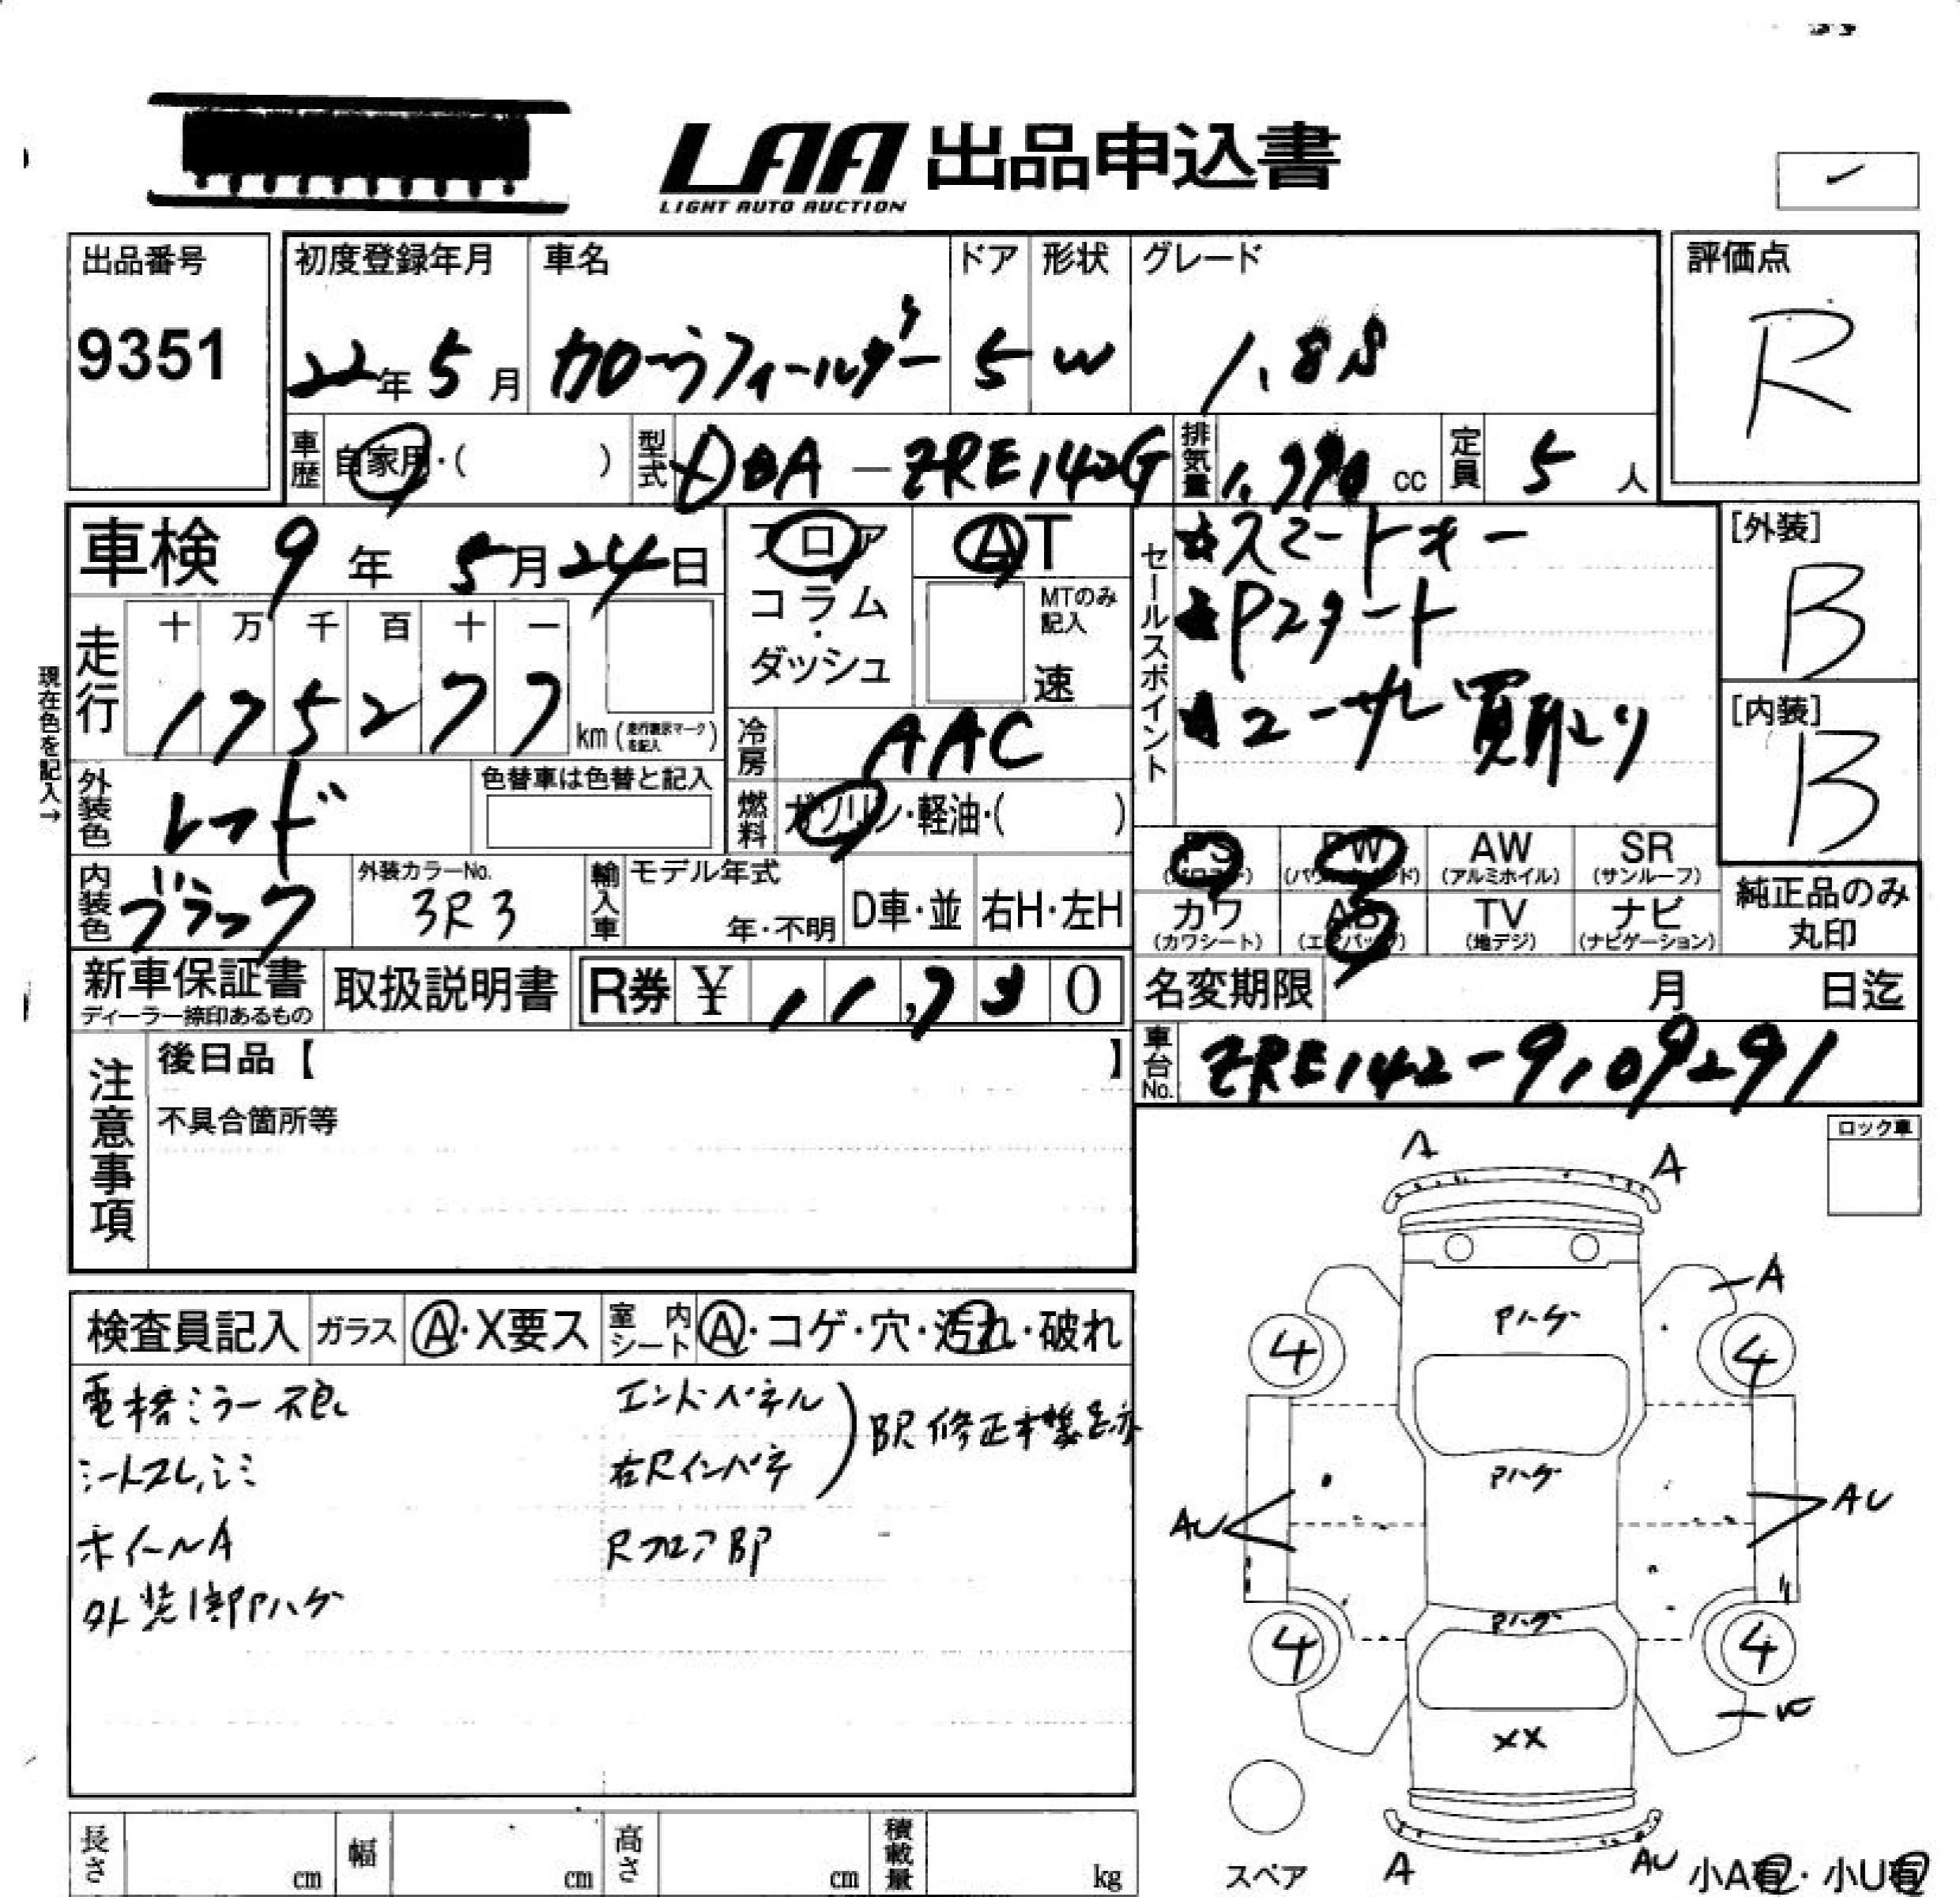 LAA 出品申込書
LIGHT AUTO AUCTION
出品番号 初度登録年月 車名 ドア 形状 グレード 評価点
9351 22年 5月 カローラフィールダー 5 W 1.8S R
車歴 自家用・( ) 型式 DBA-ZRE142G 排気量 1,790 cc 定員 5 人
車検 9年 5月 24日 フロア AT
コラム・ダッシュ MTのみ記入 速
セールスポイント ★スマートキー
★Pスタート
★ユーザー買取り
[外装] B
[内装] B
現在色を記入→
走行 十 万 千 百 十 一
1 7 5 2 7 7 km (走行表示マークを記入)
冷房 AAC
外装色 レッド 色替車は色替と記入
燃料 ガソリン・軽油・( )
内装色 ブラック 外装カラーNo. 3R3 輸入車 モデル年式 年・不明 D車・並 右H・左H
PS PW (パワーウインド) AW (アルミホイル) SR (サンルーフ)
カワ (カワシート) AB (エアバッグ) TV (地デジ) ナビ (ナビゲーション)
純正品のみ丸印
新車保証書 ディーラー捺印あるもの 取扱説明書 R券 ¥ 11,730
名変期限 月 日迄
車台No. ZRE142-9109291
注意事項 後日品【 】
不具合箇所等
ロック車
検査員記入 ガラス A・X要ス 室内シート A・コゲ・穴・汚れ・破れ
電格ミラー不良 エンドパネル
シートスレ,シミ 右Rインパネ BP修正交換跡
ホイールA Rフロア BP
外装1部Pハゲ
A A
A
Pハゲ
4 4
Pハゲ
AU AU
Pハゲ
4 4
XX
A AU
スペア 小A有・小U有
長さ cm 幅 cm 高さ cm 積載量 kg